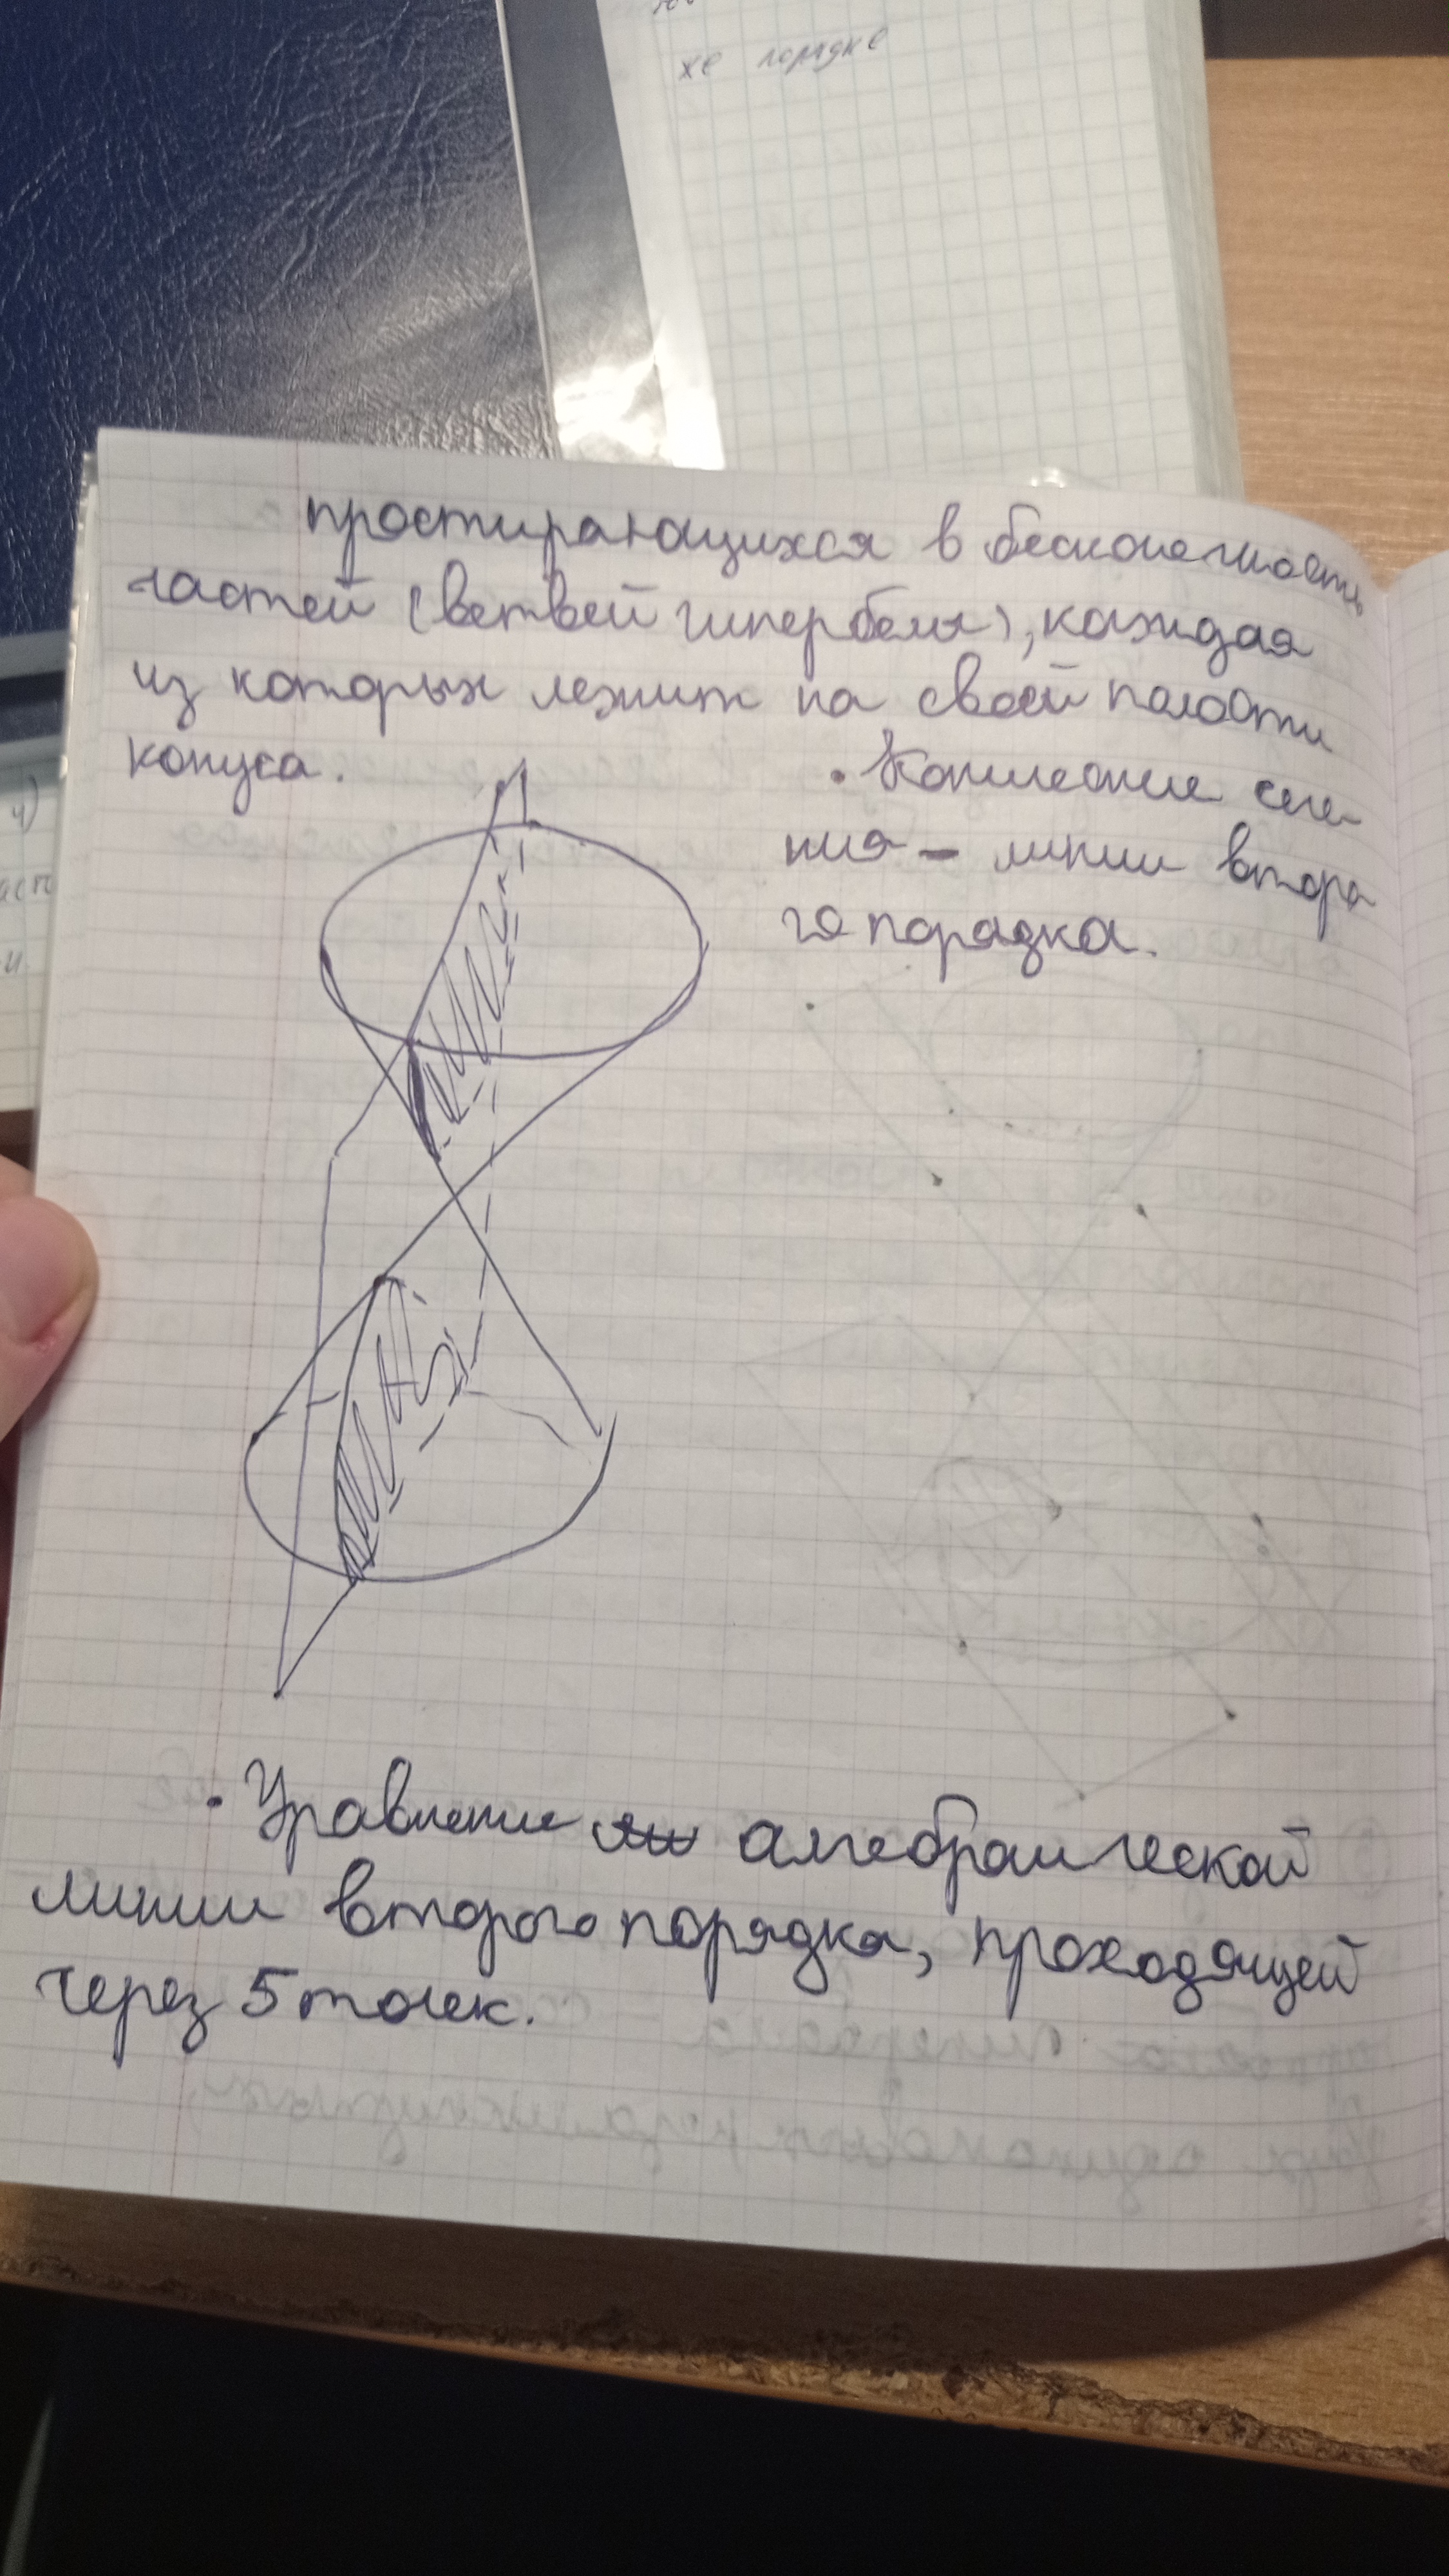 же порядке
простирающихся в бесконечность
частей (ветвей гиперболы), каждая
из которых лежит на своей полости
конуса.
• Конические сече-
ния - линии второ
го порядка.
• Уравнение алгебраической
линии второго порядка, проходящей
через 5 точек.